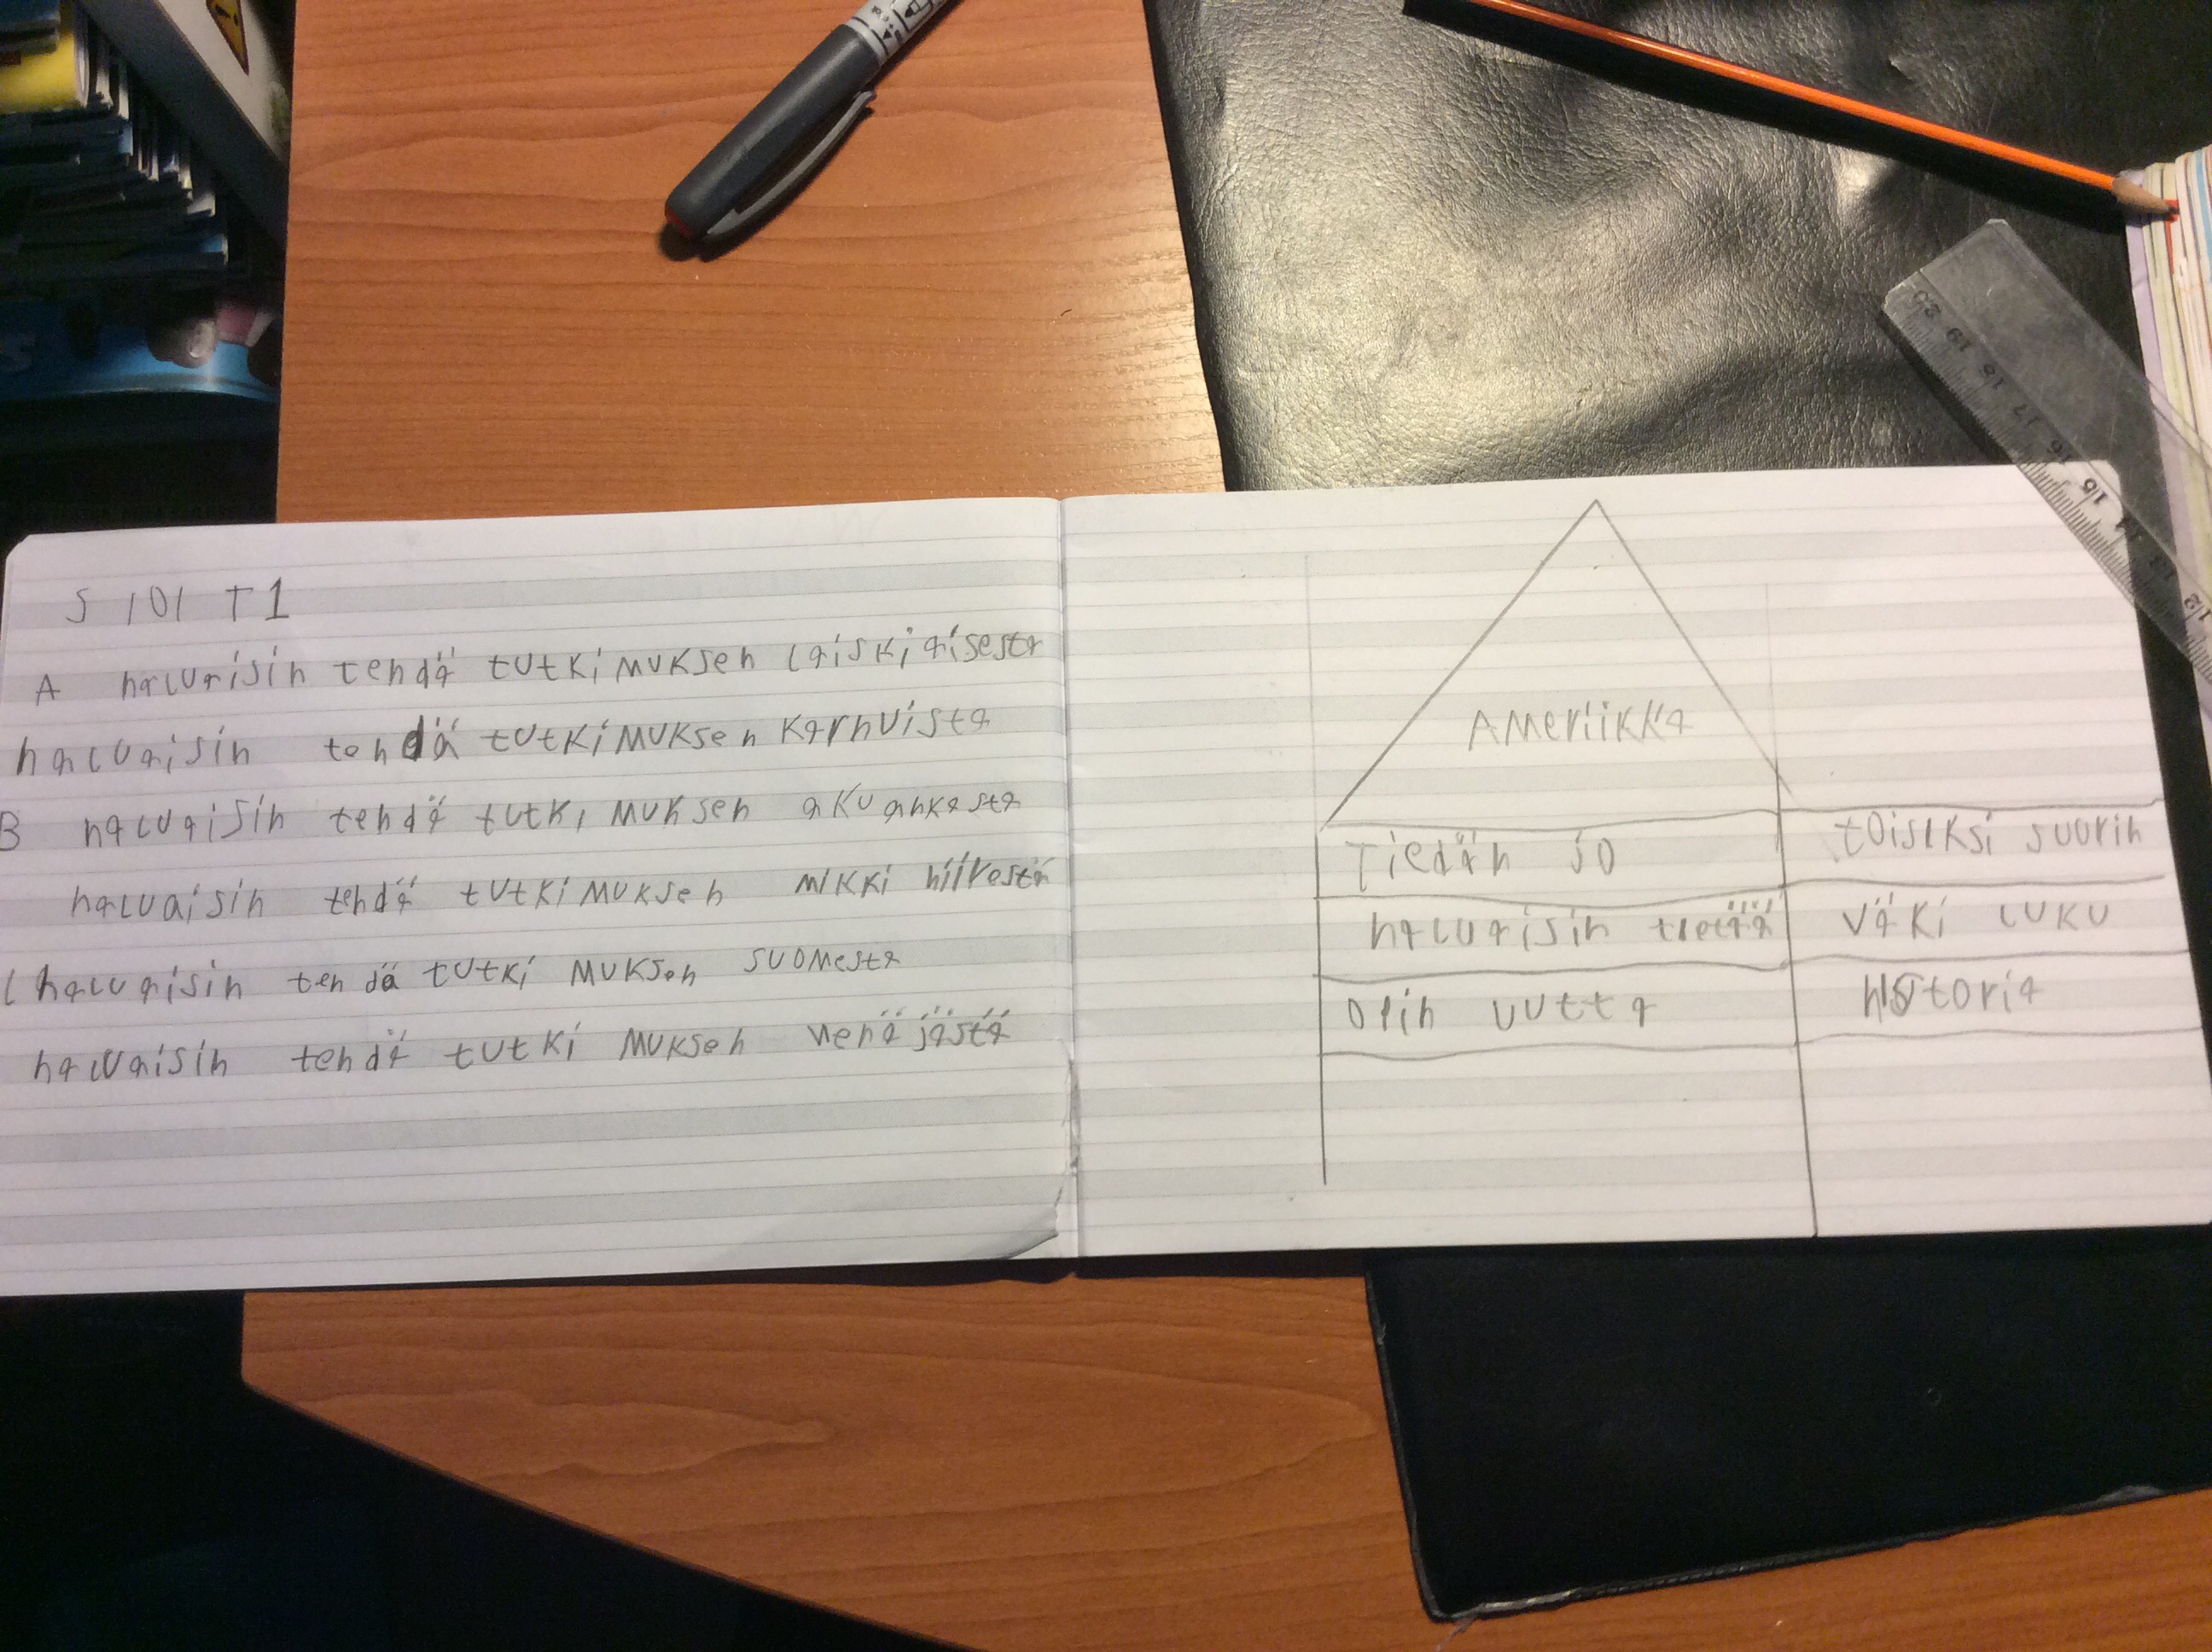 S 101 T1
A haluaisin tehdä tutki muksen laiskiaisesta
haluaisin tehdä tutkimuksen karhuista
B haluaisin tehdä tutki muksen aku ankasta
haluaisin tehdä tutkimuksen mikki hiirestä
C haluaisin tehdä tutki muksen suomesta
haluaisin tehdä tutki muksen venäjästä
Ameriikka
Tiedän jo
toiseksi suurin
haluaisin tietää
väki luku
opin uutta
historia
20 19 18 17 16 15 14 13 12